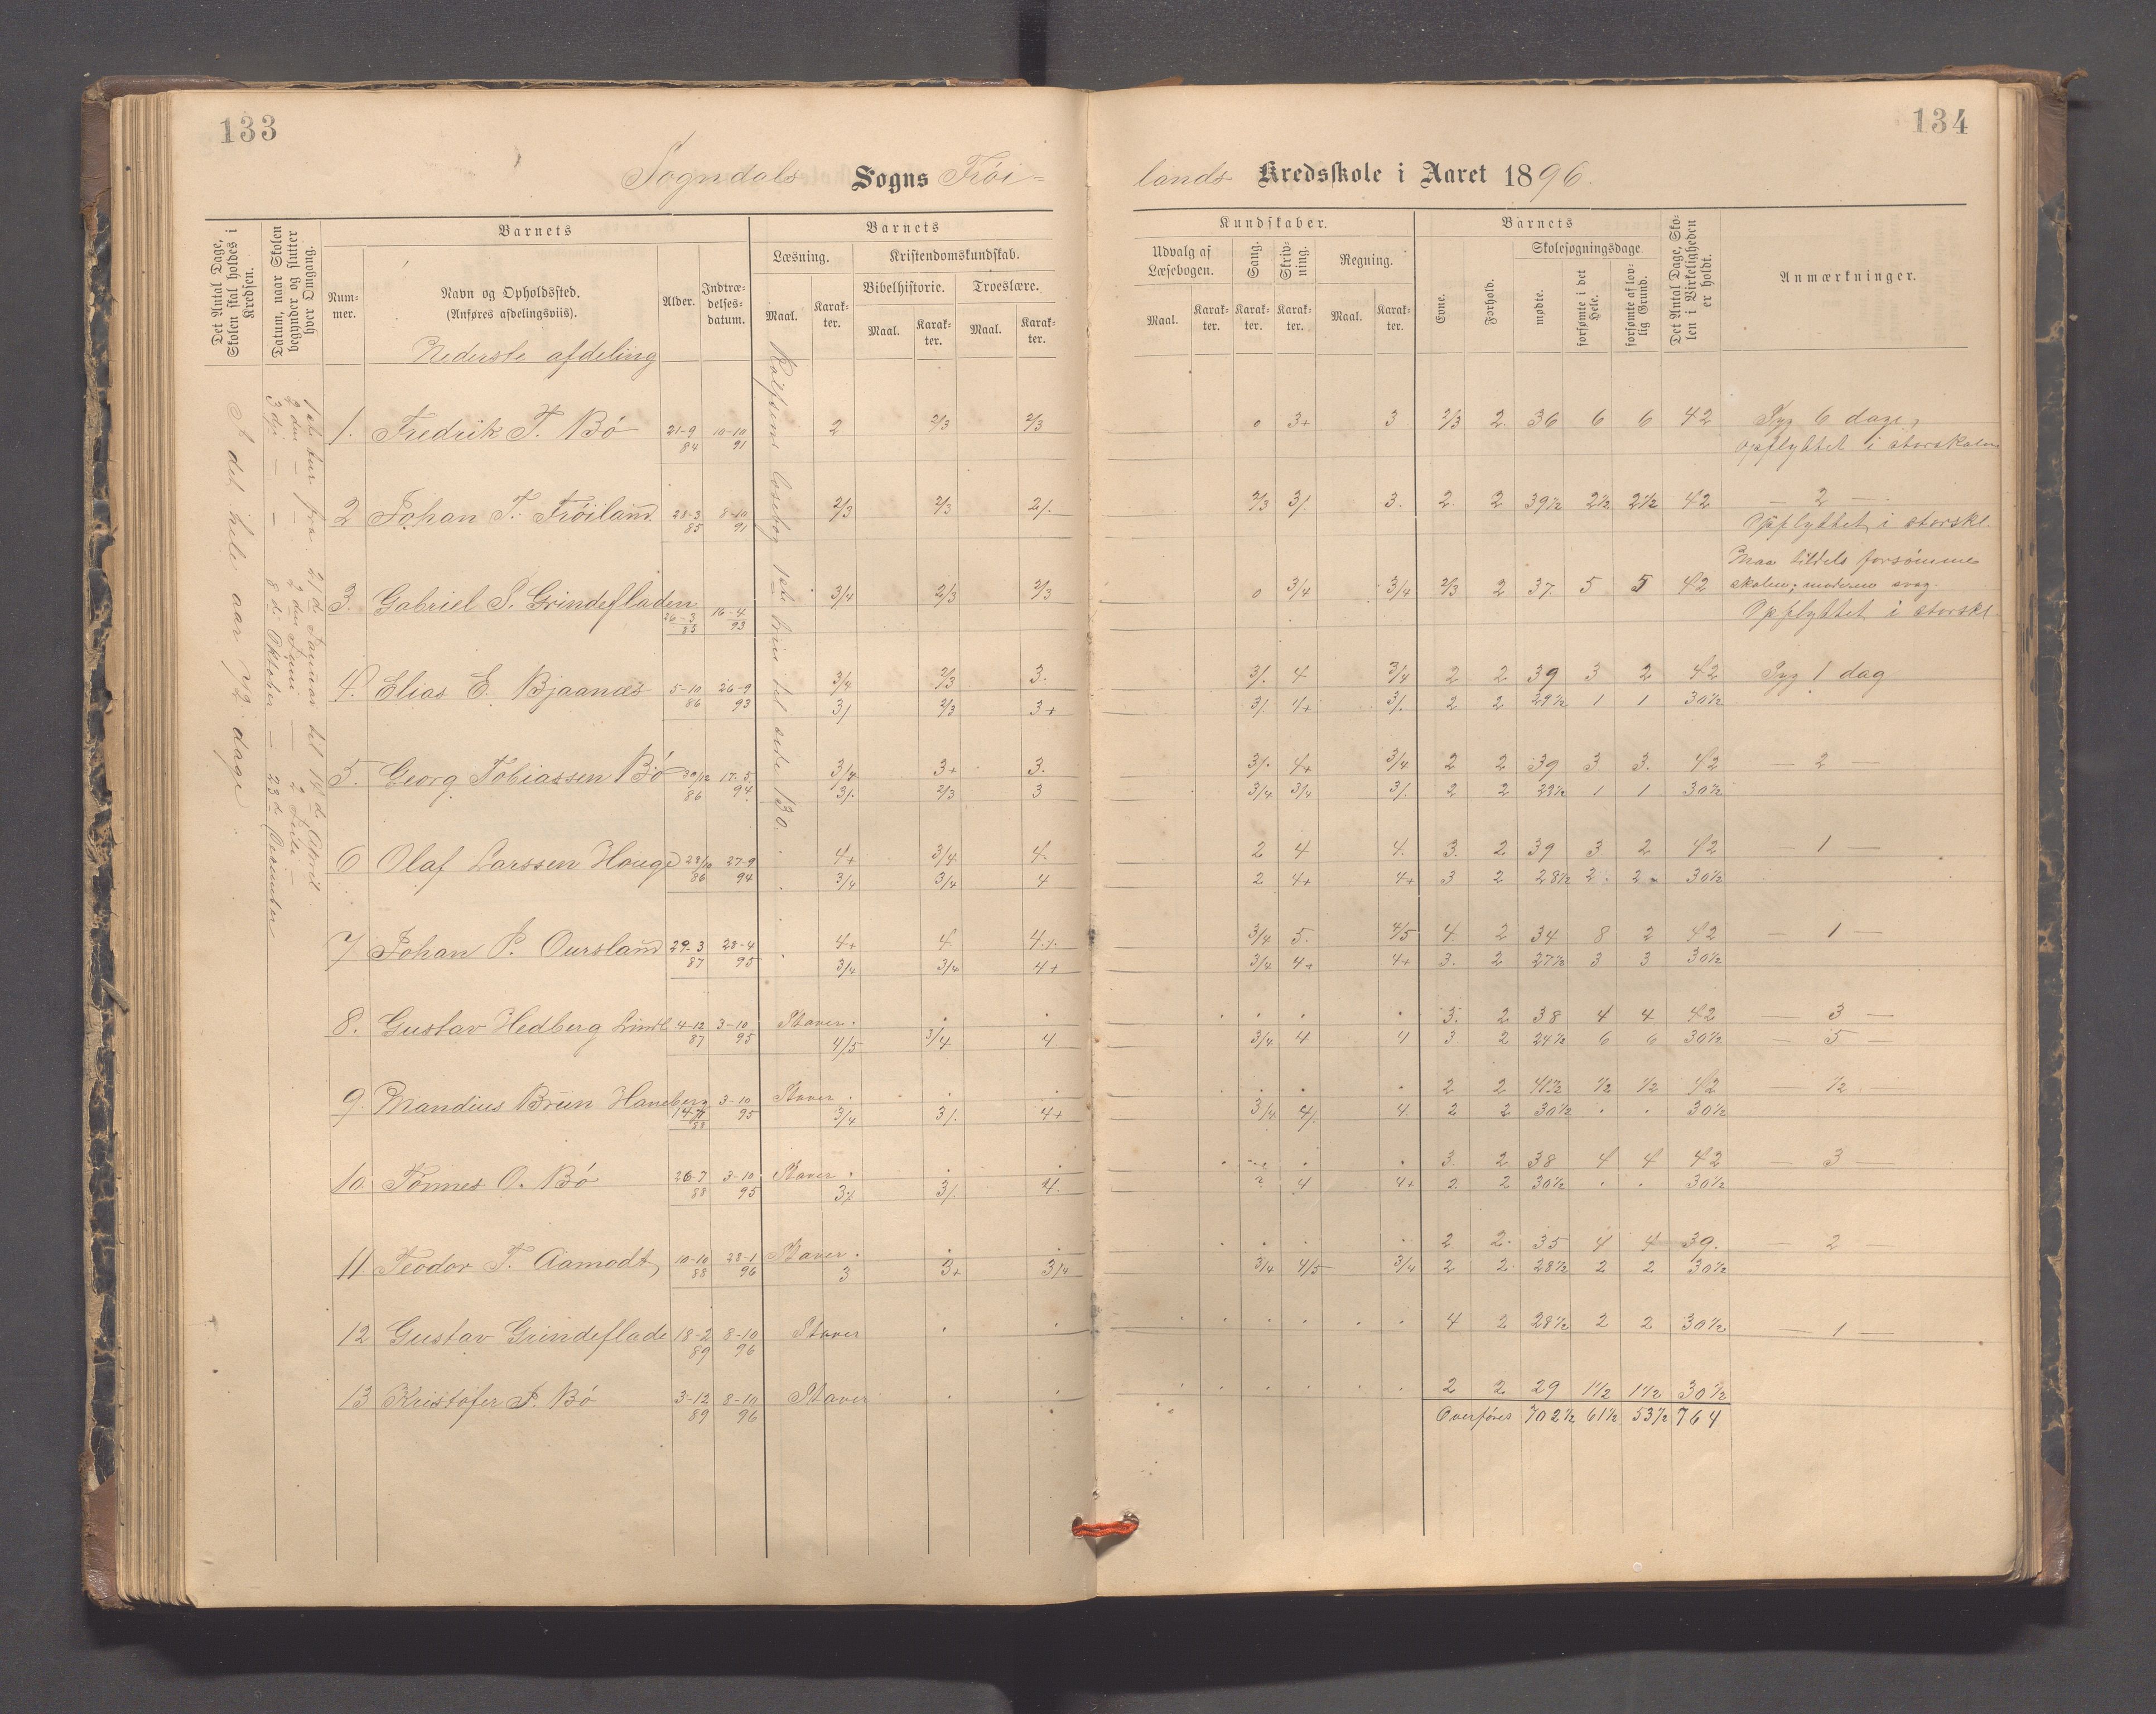 133
134
Sogndals Sogns Trøi-
lands Kredsskole i Aaret 1896.
Det Antal Dage, Skolen skal holdes i Kredsen.
Datum, naar Skolen begynder og slutter hver Omgang.
Barnets
Num-mer.
Navn og Opholdssted.
(Anføres afdelingsviis).
Alder.
Indtræ-delses-datum.
Barnets
Læsning.
Kristendomskundskab.
Bibelhistorie.
Troeslære.
Maal.
Karak-ter.
Maal.
Karak-ter.
Maal.
Karak-ter.
Kundskaber.
Udvalg af Læsebogen.
Sang.
Skriv-ning.
Regning.
Maal.
Karak-ter.
Karak-ter.
Karak-ter.
Maal.
Karak-ter.
Barnets
Evne.
Forhold.
Skolesøgningsdage.
mødte.
forsømte i det Hele.
forsømte af lov-lig Grund.
Det Antal Dage, Sko-len i Virkeligheden er holdt.
Anmærkninger.
Nederste afdeling
I det hele aar 72 dage.
1ste tur fra 21de Januar til 14de April
2den — — 2den Juni — 2 Juli —
3die — — 8de Oktober — 23de December
Rolfsens læsebog 1ste trin til side 130
1. Fredrik T. Bö 21-9 84 10-10 91 2 2/3 2/3 0 3+ 3 2/3 2. 36 6 6 42 Syg 6 dage,
opflyttet i storskolen
2 Johan T. Tröiland 28-3 85 8-10 91 2/3 2/3 2/. 2/3 3/. 3. 2. 2 39½ 2½ 2½ 42 — 2 —
Opflyttet i storskl.
3. Gabriel P. Grindefladen 26-3 83 16-4 93 3/4 2/3 2/3 0 3/4 3/4 2/3 2 37 5 5 42 Maa tildels forsömme
skolen; moderen svag.
Opflyttet i storskl
4. Elias E. Bjaanæs 5-10 86 26-9 93 3/4 2/3 3. 3/. 4 3/4 2 2 39 3 2 42 Syg 1 dag
3/ 2/3 3+ 3/. 4+ 3/. 2 2 29½ 1 1 30½
5. Georg Tobiassen Bö 30/12 86 17-5 94 3/4 3+ 3. 3/. 4+ 3/4 2 2 39 3 3. 42 — 2 —
3/. 2/3 3 3/4 3/4 3/. 2 2 29½ 1 1 30½
6 Olaf Larssen Houge 28/10 86 27-9 94 4+ 3/4 4. 2 4 4. 3. 2 39 3 2 42 — 1 —
3/4 3/4 4 2 4+ 4+ 3 2 28½ 2 2 30½
7 Johan P. Oursland 29-3 87 28-4 95 4+ 4 4/. 3/4 5. 4/5 4. 2 34 8 2 42 — 1 —
3/4 3/4 4+ 3/4 4+ 4+ 3. 2 27½ 3 3 30½
8. Gustav Hedberg Lindl 4-12 87 3-10 95 Staver . . . . . . 3. 2 38 4 4 42 — 3 —
4/5 3/4 4 3/4 4 4 3 2 24½ 6 6 30½ — 5 —
9. Mandius Brun Haneberg 88 3-10 95 Staver . . . . . . 2 2 41½ ½ ½ 42 — ½ —
3/4 3/. 4+ 3/4 4/. 4 2 2 30½ . . 30½
10 Tönnes O. Bö 26-7 88 3-10 95 Staver . . . . . . 3. 2 38 4 4 42 — 3 —
3/. 3/. 4. ? 4 4+ 2. 2 30½ . . 30½
11 Teodor T. Aamodt 10-10 88 28-1 96 Staver . . . . . . 2 2. 35 4 4 39. — 2 —
3 3+ 3/4 3/4 4/5 3/4 2 2 28½ 2 2 30½
12 Gustav Grindeflade 18-2 89 8-10 96 Staver . . . . . . 4 2 28½ 2 2 30½ — 1 —
13 Kristofer P. Bö 3-12 89 8-10 96 Staver . . . . . . 2 2 29 1½ 1½ 30½
Overföres 702½ 61½ 53½ 764